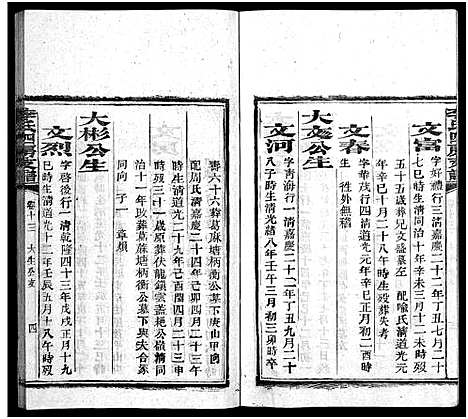 李氏四房支譜
文富
字好禮行三清嘉慶二十二年丁丑九月二十
七巳時生清同治十年辛未三月十二日未時歿
五十五歲葬兄文盛墓左 配喻氏清道光元
年辛巳十二月二十八午時生歿葬失考
文春
字華茂行四清道光元年辛巳正月初二酉時
生 性外無稽
大文公生
文河
字青海行一清嘉慶二十二年丁丑九月二十
八子時生清光緒八年壬午三月初三卯時卒
壽六十六葬葛蔴塘柄衡公墓下庚山甲向
配周氏清嘉慶二十四年己卯四月二十三
時生清道光二十九年己酉閏四月二十三申
時歿三十一歲原葬伏龍鎮雲家嶺清同
治十一年改葬葛蔴塘柄衡公墓下與夫合冢
同向 子一 章顏
大彬公生
文烈
字啓後行一清乾隆四十三年戊戌正月十九
巳時生清道光十二年壬辰五月十八午時歿
李氏四房支譜
卷十三 大生公支
四